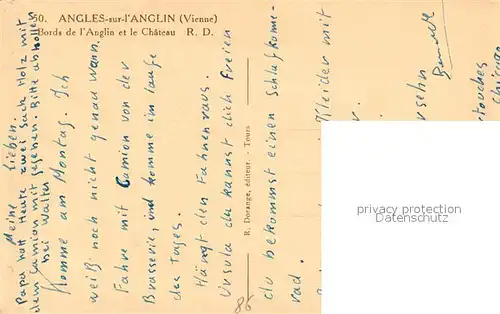 50. ANGLES-sur-l'ANGLIN (Vienne)
Bords de l'Anglin et le Château R. D.
Papa hatt Heute zwei Sack Holz mit
dem Camion mit gegeben. Bitte abhollen
bei Walter
Meine Lieben.
Komme am Montag. Ich
weiß noch nicht genau wann.
Fahre mit Camion von der
Brasserie, und komme im laufe
des Tages.
Hängt den Fahnen raus.
Ursula du kannst dich freuen
du bekommst einen Schlafkame-
rad.
R. Dorange, éditeur. - Tours
Kleider mit
86
privacy protection
oldthing.de